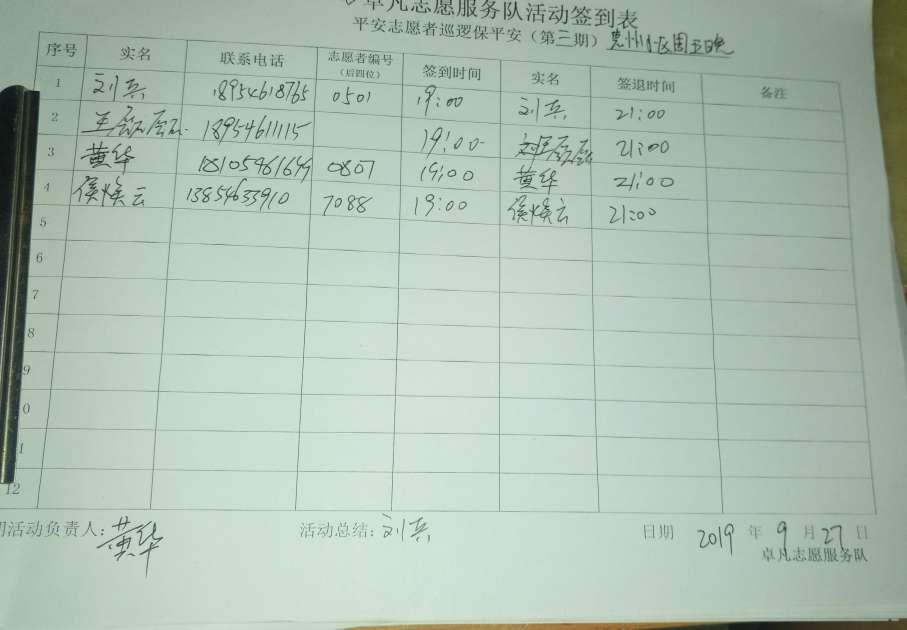 卓凡志愿服务队活动签到表
平安志愿者巡逻保平安（第三期）惠州小区周五晚
序号 实名 联系电话 志愿者编号（后四位） 签到时间 实名 签退时间 备注
1 刘兵 18954618765 0501 19:00 刘兵 21:00
2 18954611115 19:00 21:00
3 黄华 0807 19:00 黄华 21:00
4 侯焕云 13854633910 7088 19:00 侯焕云 21:00
5
6
7
8
9
0
1
12
活动负责人：黄华 活动总结：刘兵 日期 2019 年 9 月 27 日
卓凡志愿服务队